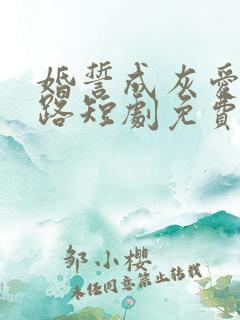 婚誓成灰愛
路短劇免費
邹小樱
未经同意禁止转载